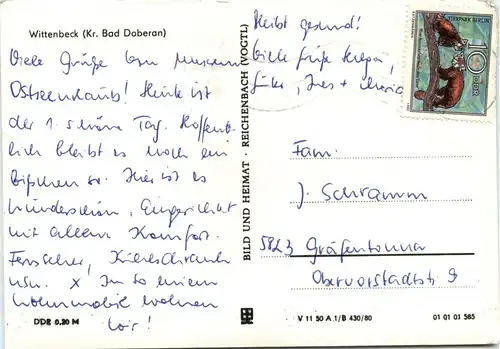 Wittenbeck (Kr. Bad Doberan)
Viele Grüße vom
Ostseeurlaub! Heute ist
der 1. schöne Tag. Hoffent-
lich bleibt es noch ein
bißchen so. Hier ist es
wunderschön, Eingerichtet
mit allem Komfort.
Fernseher, Kühlschrank
usw. x In so einem
Wohnmobil wohnen
wir!
DDR 0,20 M
BILD UND HEIMAT · REICHENBACH (VOGTL)
Bleibt gesund!
Viele Grüße
Ines +
TIERPARK BERLIN
10
DDR
Fam.
J. Schramm
5823 Gräfentonna
Obervorstadtstr. 9
V 11 50 A 1/B 430/80
01 01 01 585